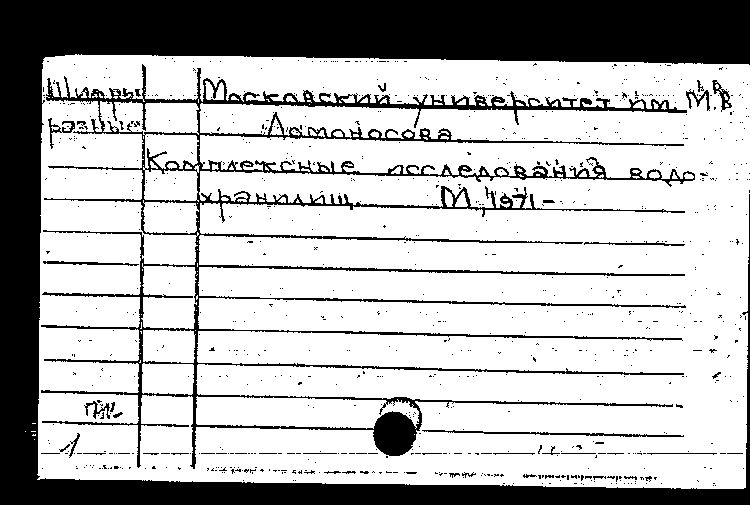 Шифры Московский университет им. М.В.
разные Ломоносова
Комплексные исследования водо-
хранилищ. М., 1971-
1